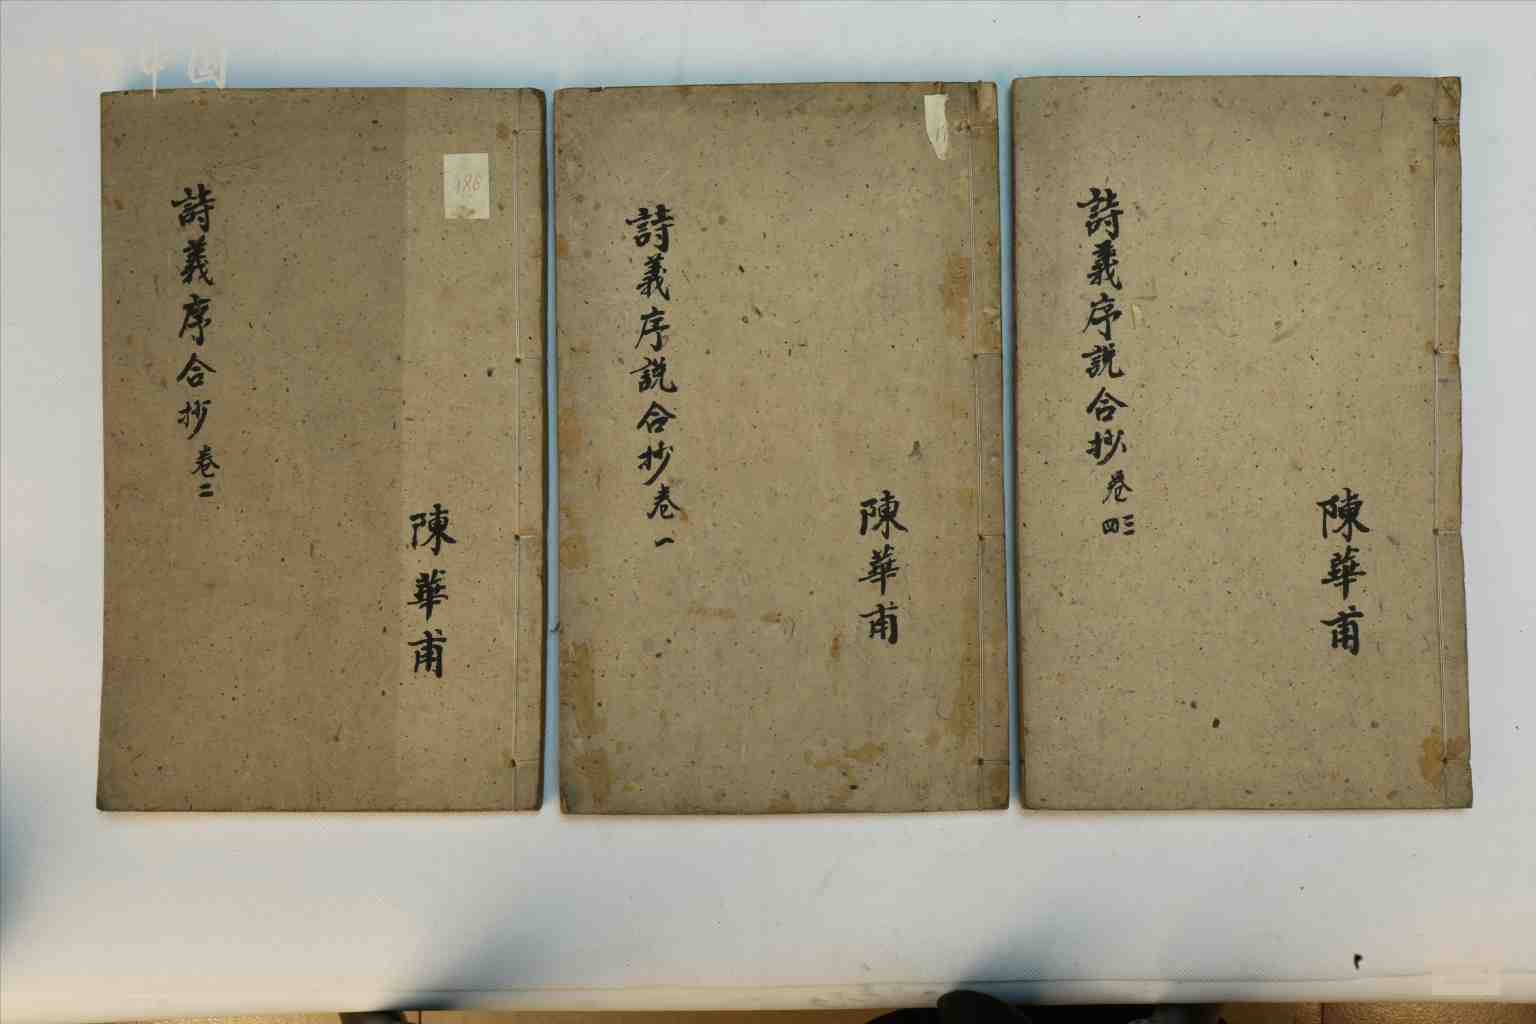 中国
詩義序合抄 卷二
陳華甫
186
詩義序説合抄 卷一
陳華甫
詩義序説合抄 卷三四
陳華甫